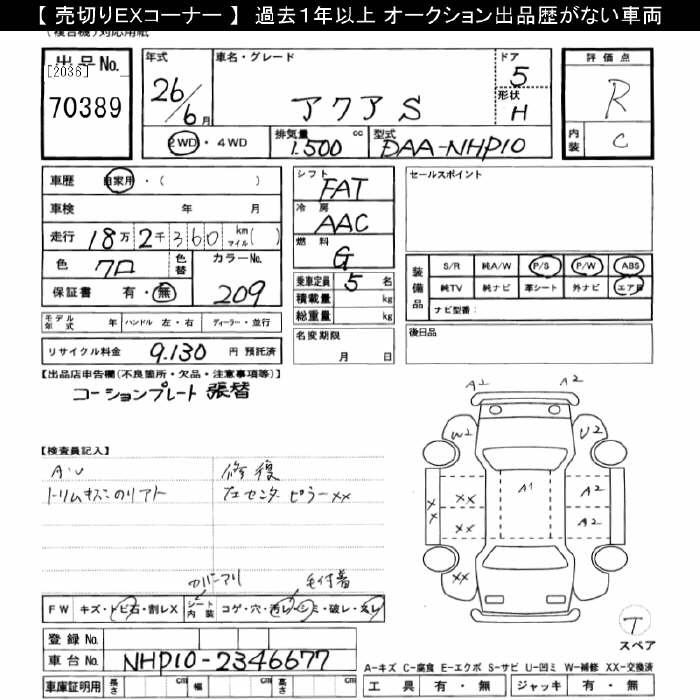 【 売切りEXコーナー 】 過去1年以上 オークション出品歴がない車両
出品No.
[2036]
70389
年式
26/6月
車名・グレード
アクア S
ドア
5
形状
H
評価点
R
内装
C
2WD・4WD
排気量
1.500 cc
型式
DAA-NHP10
車歴 自家用・( )
車検 年 月
走行 18万2千360 km マイル( )
色 クロ 色替
カラーNo.
209
保証書 有・無
シフト
FAT
冷房
AAC
燃料
G
乗車定員 5 名
積載量 kg
総重量 kg
名変期限
月 日
セールスポイント
装備品
S/R 純A/W P/S P/W ABS
純TV 純ナビ 革シート 外ナビ エアB
ナビ型番:
後日品
モデル年式 年 ハンドル 左・右 ディーラー・並行
リサイクル料金 9.130 円 預託済
【出品店申告欄(不良箇所・欠品・注意事項等)】
コーションプレート 張替
【検査員記入】
修復
左センターピラー XX
A1
A2
W2
U2
A1
A2
A2
XX
XX
XX
XX
FW キズ・トビ石・割レX シート内装 コゲ・穴・汚レ・シミ・破レ・スレ
登録No.
車台No. NHP10-2346677
車庫証明用 長さ cm 幅 cm 高さ cm
T
スペア
A-キズ C-腐食 E-エクボ S-サビ U-凹ミ W-補修 XX-交換済
工具 有・無 ジャッキ 有・無